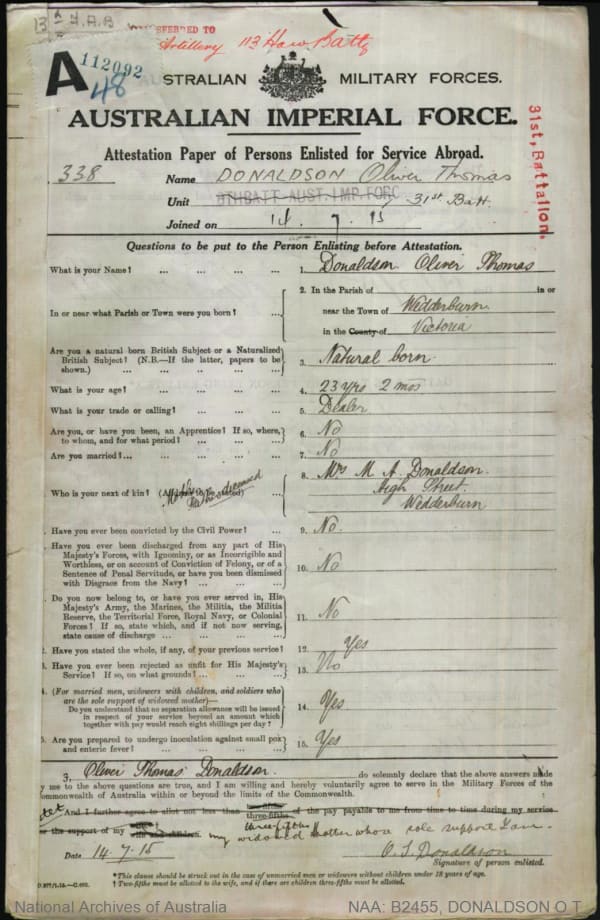 13 A.A.B
TRANSFERRED TO
Artillery 113 How Batty
A 112092
48
AUSTRALIAN MILITARY FORCES.
AUSTRALIAN IMPERIAL FORCE.
31st, Battalion.
Attestation Paper of Persons Enlisted for Service Abroad.
338 Name DONALDSON Oliver Thomas
Unit BATT AUST. IMP. FORC 31st Batt.
Joined on 14 . 7 . 15
Questions to be put to the Person Enlisting before Attestation.
What is your Name? ... ... ... ... 1. Donaldson Oliver Thomas
2. In the Parish of in or
In or near what Parish or Town were you born? ... near the Town of Wedderburn
in the County of Victoria
Are you a natural born British Subject or a Naturalized
British Subject? (N.B.—If the latter, papers to be
shown.) ... ... ... ... 3. Natural born.
What is your age? ... ... ... ... 4. 23 yrs 2 mos
What is your trade or calling? ... ... ... 5. Dealer
Are you, or have you been, an Apprentice? If so, where,
to whom, and for what period? ... ... ... 6. No
Are you married?... ... ... ... 7. No
8. Mrs M A Donaldson.
Who is your next of kin? Mother Father deceased High Street.
Wedderburn
Have you ever been convicted by the Civil Power? ... 9. No.
Have you ever been discharged from any part of His
Majesty's Forces, with Ignominy, or as Incorrigible and
Worthless, or on account of Conviction of Felony, or of a
Sentence of Penal Servitude, or have you been dismissed
with Disgrace from the Navy? ... ... ... 10. No
Do you now belong to, or have you ever served in, His
Majesty's Army, the Marines, the Militia, the Militia
Reserve, the Territorial Force, Royal Navy, or Colonial
Forces? If so, state which, and if not now serving,
state cause of discharge ... ... ... 11. No
2. Have you stated the whole, if any, of your previous service? 12. Yes
3. Have you ever been rejected as unfit for His Majesty's
Service? If so, on what grounds? ... ... 13. No
4. (For married men, widowers with children, and soldiers who
are the sole support of widowed mother)—
Do you understand that no separation allowance will be issued
in respect of your service beyond an amount which
together with pay would reach eight shillings per day? 14. Yes
5. Are you prepared to undergo inoculation against small pox
and enteric fever? ... ... ... ... 15. Yes
I, Oliver Thomas Donaldson. do solemnly declare that the above answers made
by me to the above questions are true, and I am willing and hereby voluntarily agree to serve in the Military Forces of the
Commonwealth of Australia within or beyond the limits of the Commonwealth.
And I further agree to allot not less than two-fifths three-fifths of the pay payable to me from time to time during my service
for the support of my wife wife and children. three-fifths my widowed Mother whose sole support I am.
Date 14.7.15 O. T. Donaldson
Signature of person enlisted.
*This clause should be struck out in the case of unmarried men or widowers without children under 18 years of age.
† Two-fifths must be allotted to the wife, and if there are children three-fifths must be allotted.
National Archives of Australia NAA: B2455, DONALDSON O T